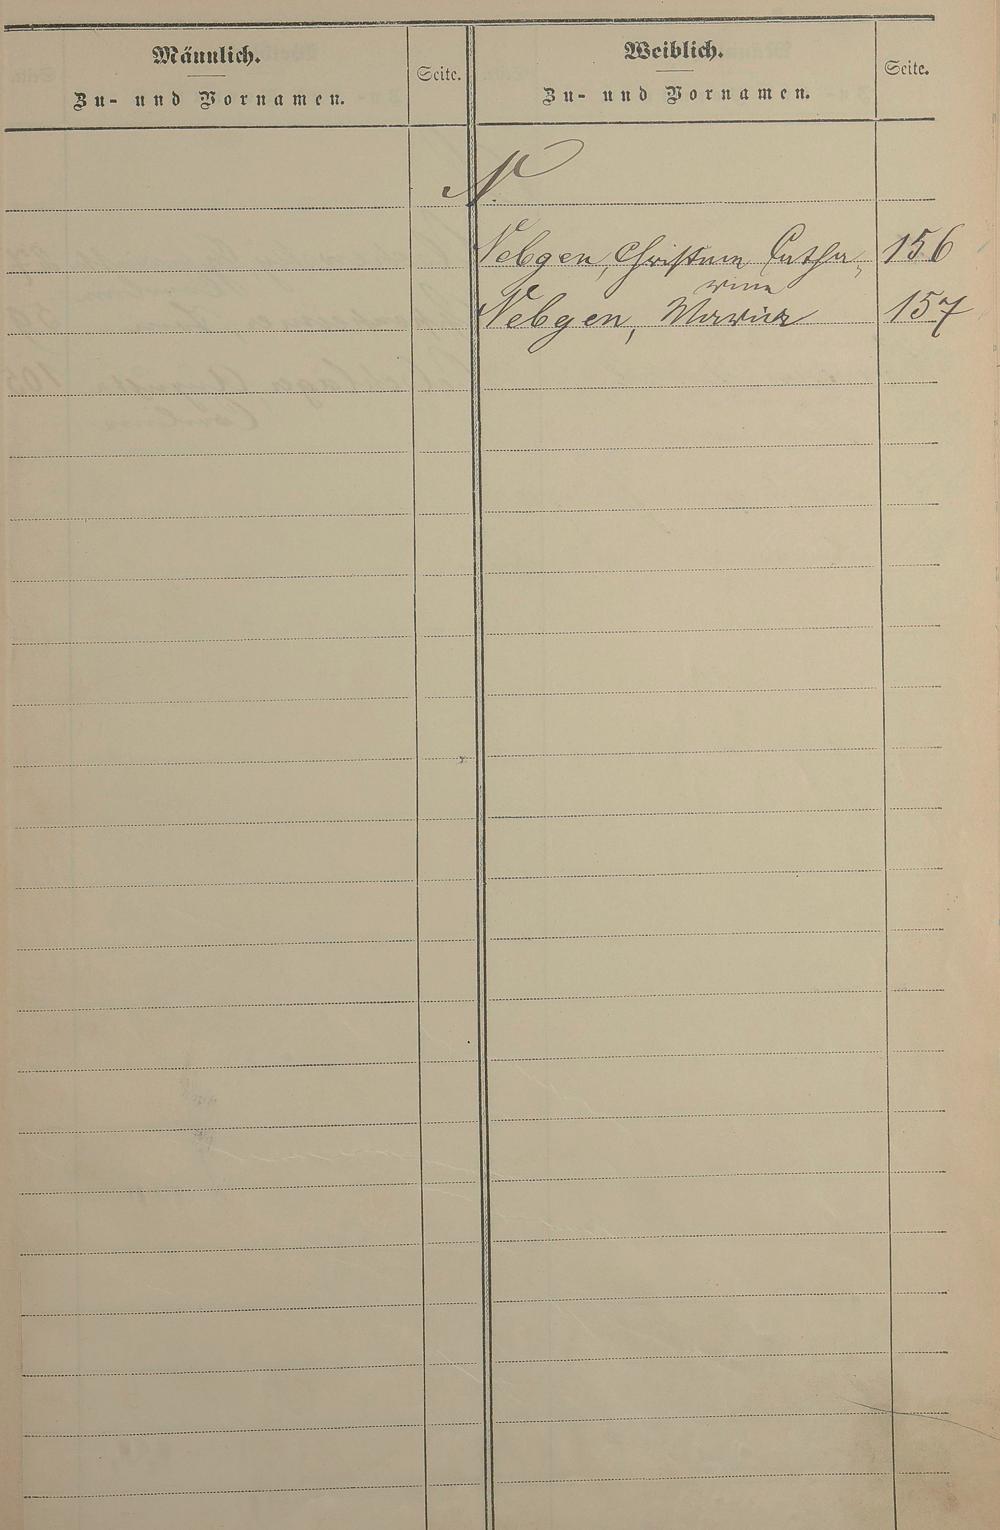 Männlich.
Zu- und Vornamen.
Seite.
Weiblich.
Zu- und Vornamen.
Seite.
N.
Nebgen, Christine Catha- 156
rina
Nebgen, Maria 157